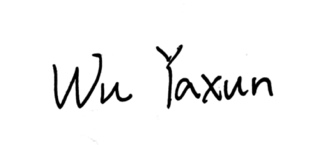 Wu Yaxun